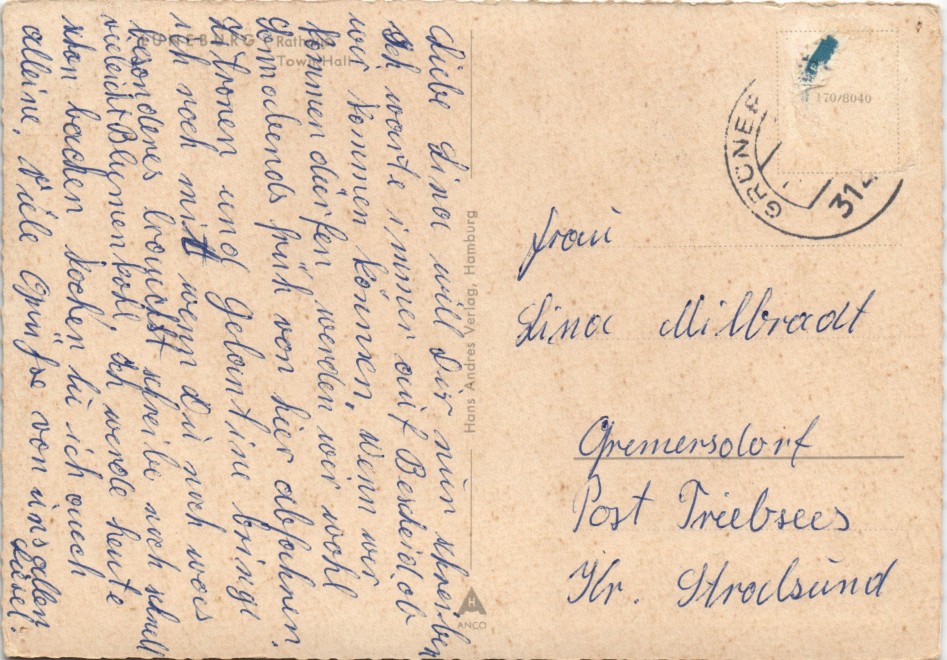 LÜNEBURG, Rath
Town Hall
Liebe Lina will Dir nur schreiben
Ich warte immer auf Bescheid ob
wir kommen können, wenn wir
kommen dürfen werden wir wohl
Sonnabends früh von hier abfahren.
Zitronen und Gelantine bringe
ich noch mit wenn Du noch was
besonderes brauchst schreibe noch schnell
vieleicht Blumenkohl, ich werde heute
schon backen kochen tu ich auch
alleine. Viele Grüße von uns allen
Lisel.
Hans Andres Verlag, Hamburg
ANCO
170/8040
GRÜNE
314
Frau
Lina Milbradt
Gremersdorf
Post Triebsees
Kr. Stralsund